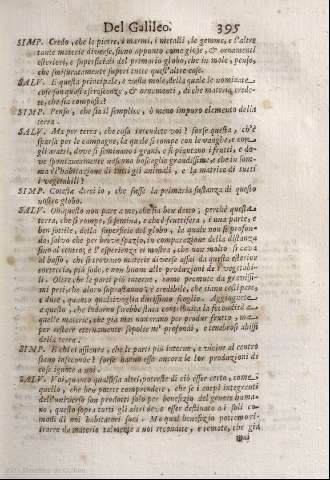 Del Galileo. 395
SIMP. Credo, che le pietre, i marmi, i metalli, le gemme, e l'altre
tante materie diverse, sieno appunto come gioje, & ornamenti
esteriori, e superficiali del primario globo, che in mole, penso,
che smisuratamente superi tutte quest'altre cose.
SALV. E questa principale, e vasta mole, della quale le nominate
cose son quasi escrescenze, & ornamenti, di che materia crede-
te, che sia composta?
SIMP. Penso, che sia il semplice, ò meno impuro elemento della
terra.
SALV. Ma per terra, che cosa intendete voi? forse questa, ch'è
sparsa per le campagne, la quale si rompe con le vanghe, e con
gli aratri, dove si seminano i grani, e si piantono i frutti, e do-
ve spontaneamente nascono boscaglie grandissime, e che in som-
ma è l'habitazione di tutti gli animali, e la matrice di tutti
i vegetabili?
SIMP. Cotesta direi io, che fosse la primaria sustanza di questo
nostro globo.
SALV. O questo non pare a me, che sia ben detto; perchè questa
terra, che si rompe, si semina, e che è fruttifera, è una parte, e
ben sottile, della superficie del globo, la quale non si profon-
da, salvo che per breve spazio, in comparazione della distanza
sino al centro; e l'esperienze ci mostra, che non molto si cava
al basso, che si trovano materie diverse assai da questa esterior
corteccia, più sode, e non buone alle produzioni de i vegetabi-
li. Oltre che le parti più interne, come premute da gravissi-
mi pesi, che aloro soprastanno, è credibile, che siano costipate,
e dure, quanto qualsivoglia durissimo scoglio. Aggiugnete
a questo, che indarno sarebbe stata contribuita la fecondità a
quelle materie, che già mai non erano per produr frutto, ma
per restare eternamente sepolte ne' profondi, e tenebrosi abissi
della terra.
SIMP. E chi ci assicura, che le parti più interne, e vicine al centro
siano infeconde? forse hanno esse ancora le lor produzioni di
cose ignote a noi.
SALV. Voi, quanto qualsisia altri, potreste di ciò esser certo, come
quello, che ben potete comprendere, che se i corpi integranti
dell'universo son prodotti solo per benefizio del genere huma-
no, questo sopra tutti gli altri deve esser destinato a i soli co-
modi di noi habitatori suoi. Ma qual benefizio potremo ri-
trarre da materie talmente a noi recondite, e remote, che già
mai